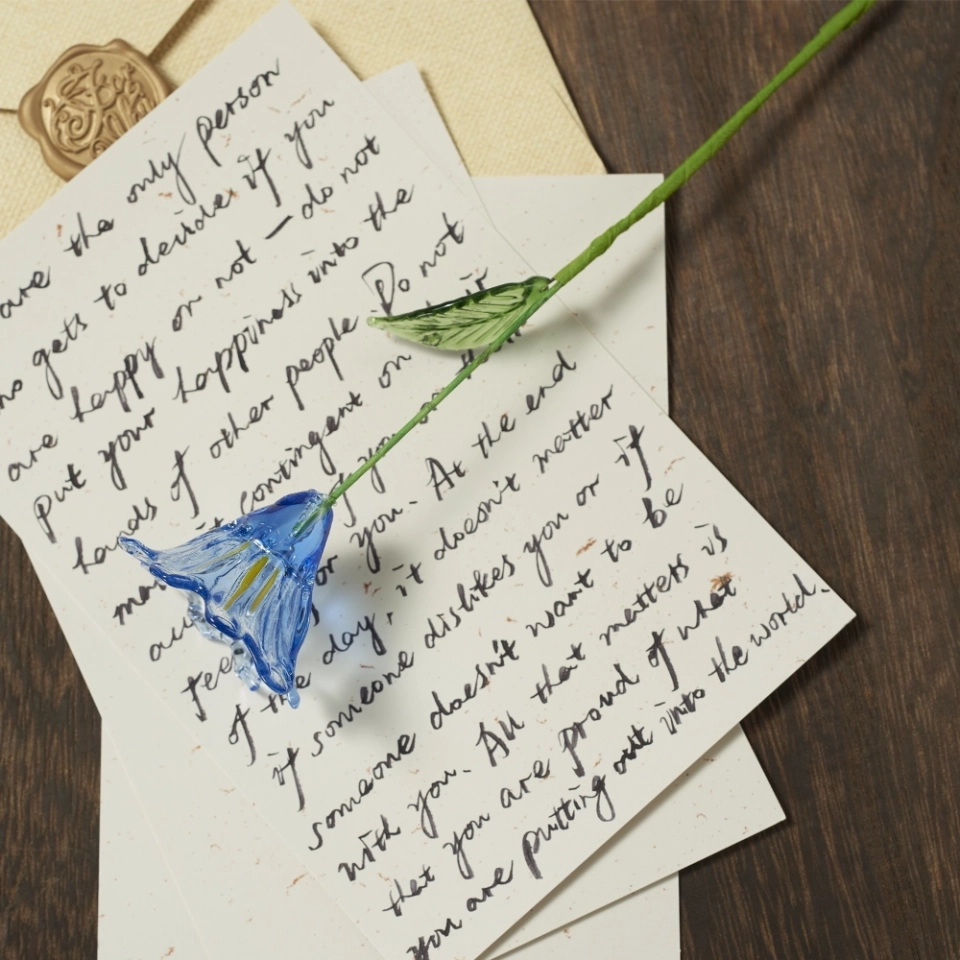 are the only person
gets to decide if you
are happy or not — do not
put your happiness into the
hands of other people Do not
it contingent on
you
for you. At the end
of the day, it doesn't matter
if someone dislikes you or if
someone doesn't want to be
with you. All that matters is
that you are proud of what
you are putting out into the world.